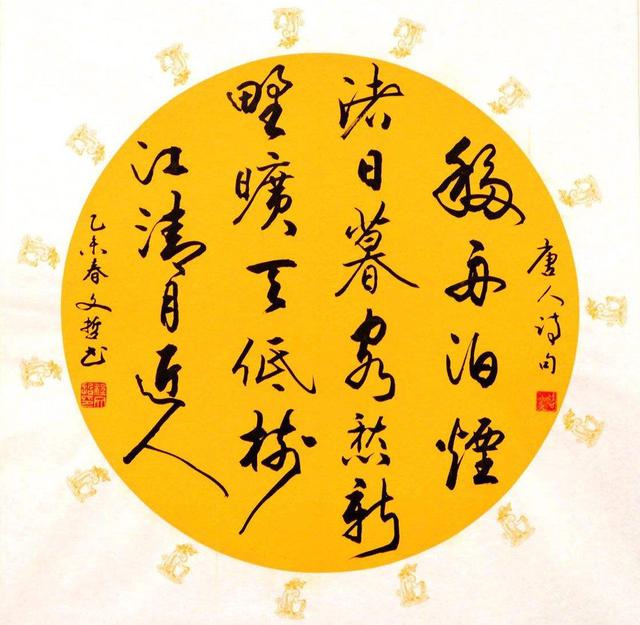 唐人诗句
移舟泊煙
渚日暮客愁新
野曠天低樹
江清月近人
乙未春文哲书